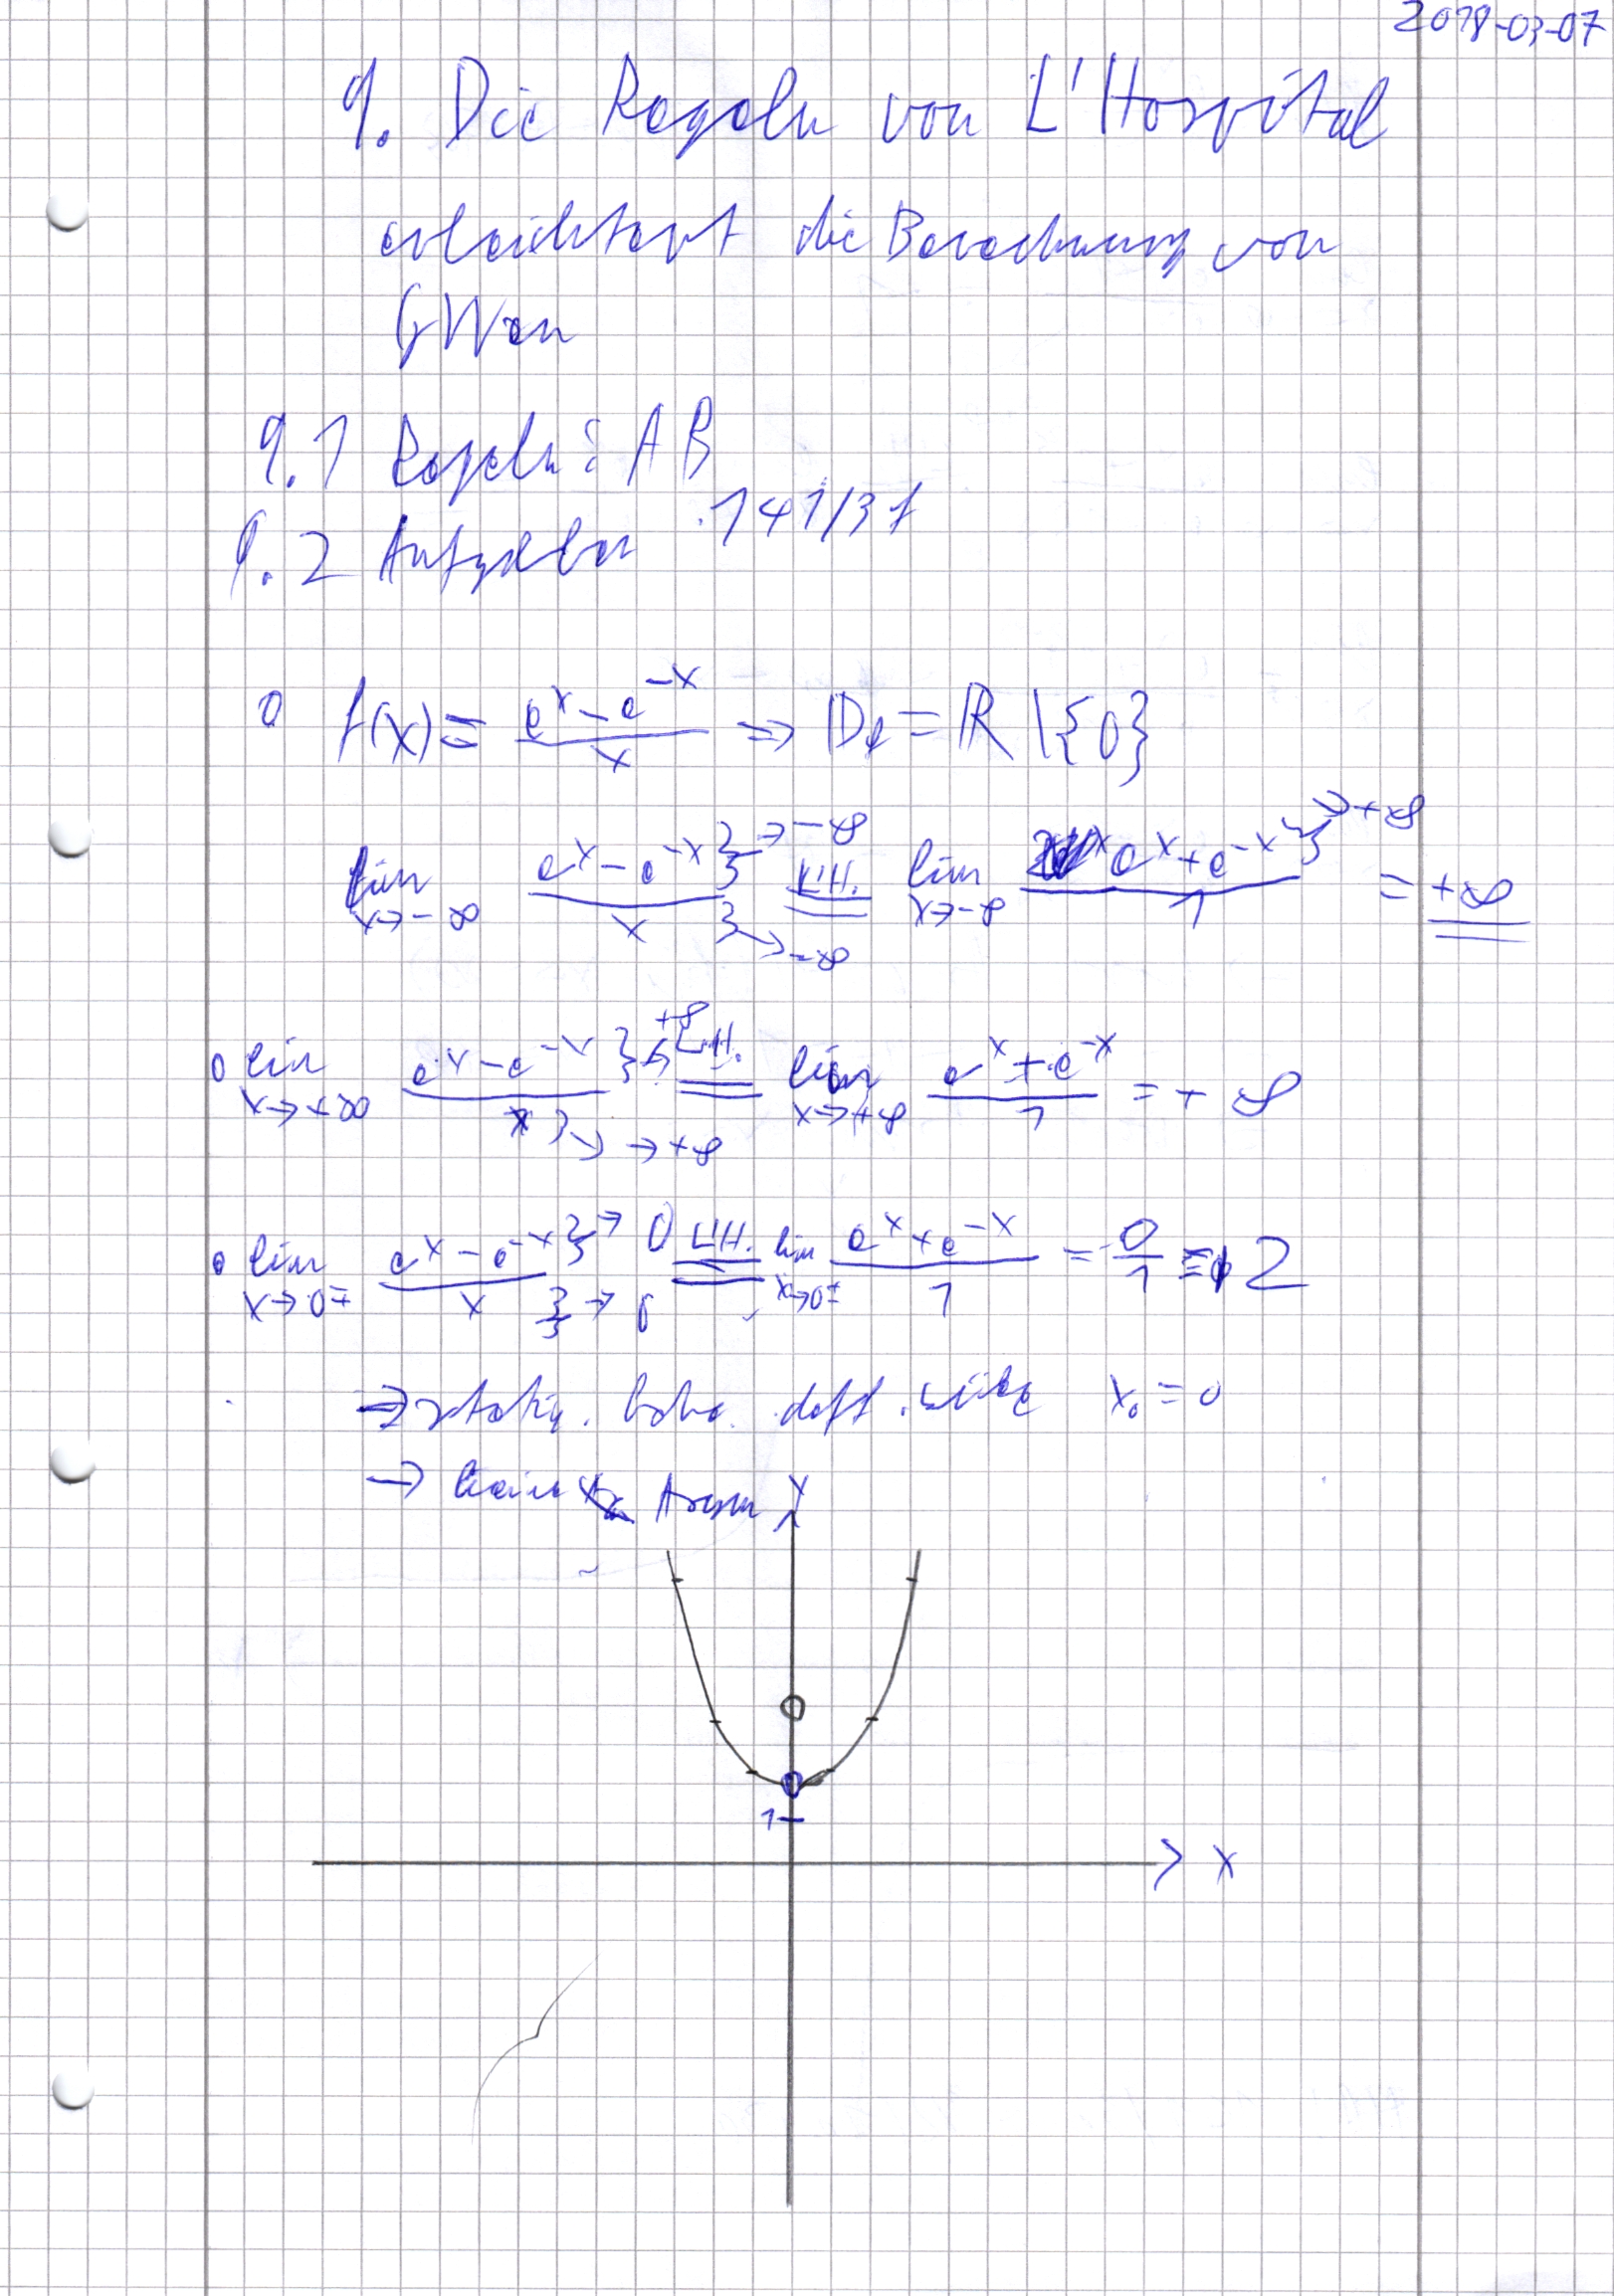 2018-03-07
9. Die Regeln von L'Hospital
erleichtert die Berechnung von
GWen
9.1 Regeln: AB
9.2 Aufgaben 141/3f
f(x) = (e^x - e^-x)/x ⇒ D_f = ℝ \ {0}
lim x→-∞ (e^x - e^-x)/x }→-∞ }→-∞ L'H. = lim x→-∞ (e^x + e^-x)/1 }→+∞ = +∞
lim x→+∞ (e^x - e^-x)/x }→+∞ }→+∞ L'H. = lim x→+∞ (e^x + e^-x)/1 = +∞
lim x→0± (e^x - e^-x)/x }→0 }→0 L'H. = lim x→0± (e^x + e^-x)/1 = 2
⇒ stetig beh. x₀ = 0
→ keine
y
1
x